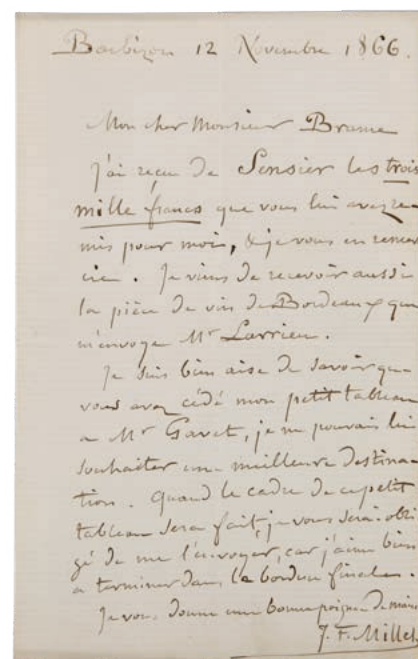 Barbizon 12 Novembre 1866.
Mon cher Monsieur Brame
J'ai reçu de Sensier les trois
mille francs que vous lui avez re-
mis pour moi, & je vous en remer-
cie. Je viens de recevoir aussi
la pièce de vin de Bordeaux que
m'envoye Mr Larrieu.
Je suis bien aise de savoir que
vous avez cédé mon petit tableau
a Mr Gavet, je ne pouvais lui
souhaiter une meilleure destina-
tion. Quand le cadre de ce petit
tableau sera fait, je vous serai obli
gé de me l'envoyer, car j'aime bien
a terminer dans la bordure finale.
Je vous donne une bonne poignée de main
J. F. Millet